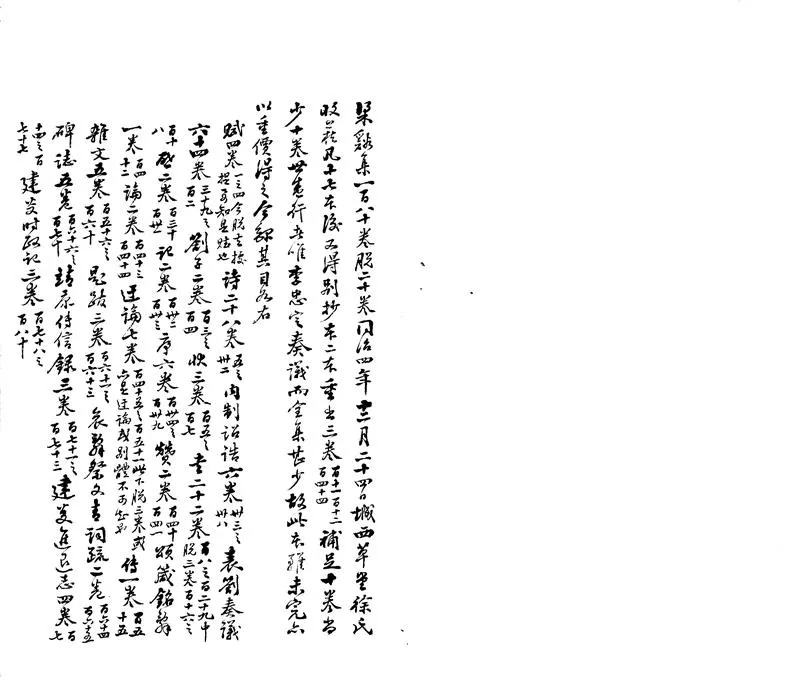 梁谿集一百八十卷脱二十卷同治四年十二月二十四日城西草堂徐氏
收藏凡十七本後又得别抄本二本重出三卷百十一百十二百四十四補足十卷尚
少十卷世慈行者唯李忠定奏議而全集甚少故此本雖未完亦
以重價得之今錄其目如右
賦四卷一之四今脱去據提要知是賦也詩二十八卷五之卅二内制詔誥六卷卅三之卅八表劄奏議
六十四卷三十九之百二劄子二卷百三之百四狀三卷百五之百七書二十二卷百八之百二十九中脱三卷百十六之
百十八啟二卷百三十百卅一記二卷百卅二百卅三序六卷百卅四之百卅九贊二卷百四十百四一頌箴銘辭
一卷百四十二論二卷百四十三百四十四迂論七卷百四十五之百五十一此下脱三卷或亦是迂論或别體不可知矣傳一卷百五十五
雜文五卷百五十六之百六十題跋三卷百六十一之百六十三哀辭祭文青詞疏二卷百六十四百六十五
碑誌五卷百六十六之百七十靖康傳信錄三卷百七十一之百七十三建炎進退志四卷百七
十四之百七十七建炎時政記三卷百七十八之百八十